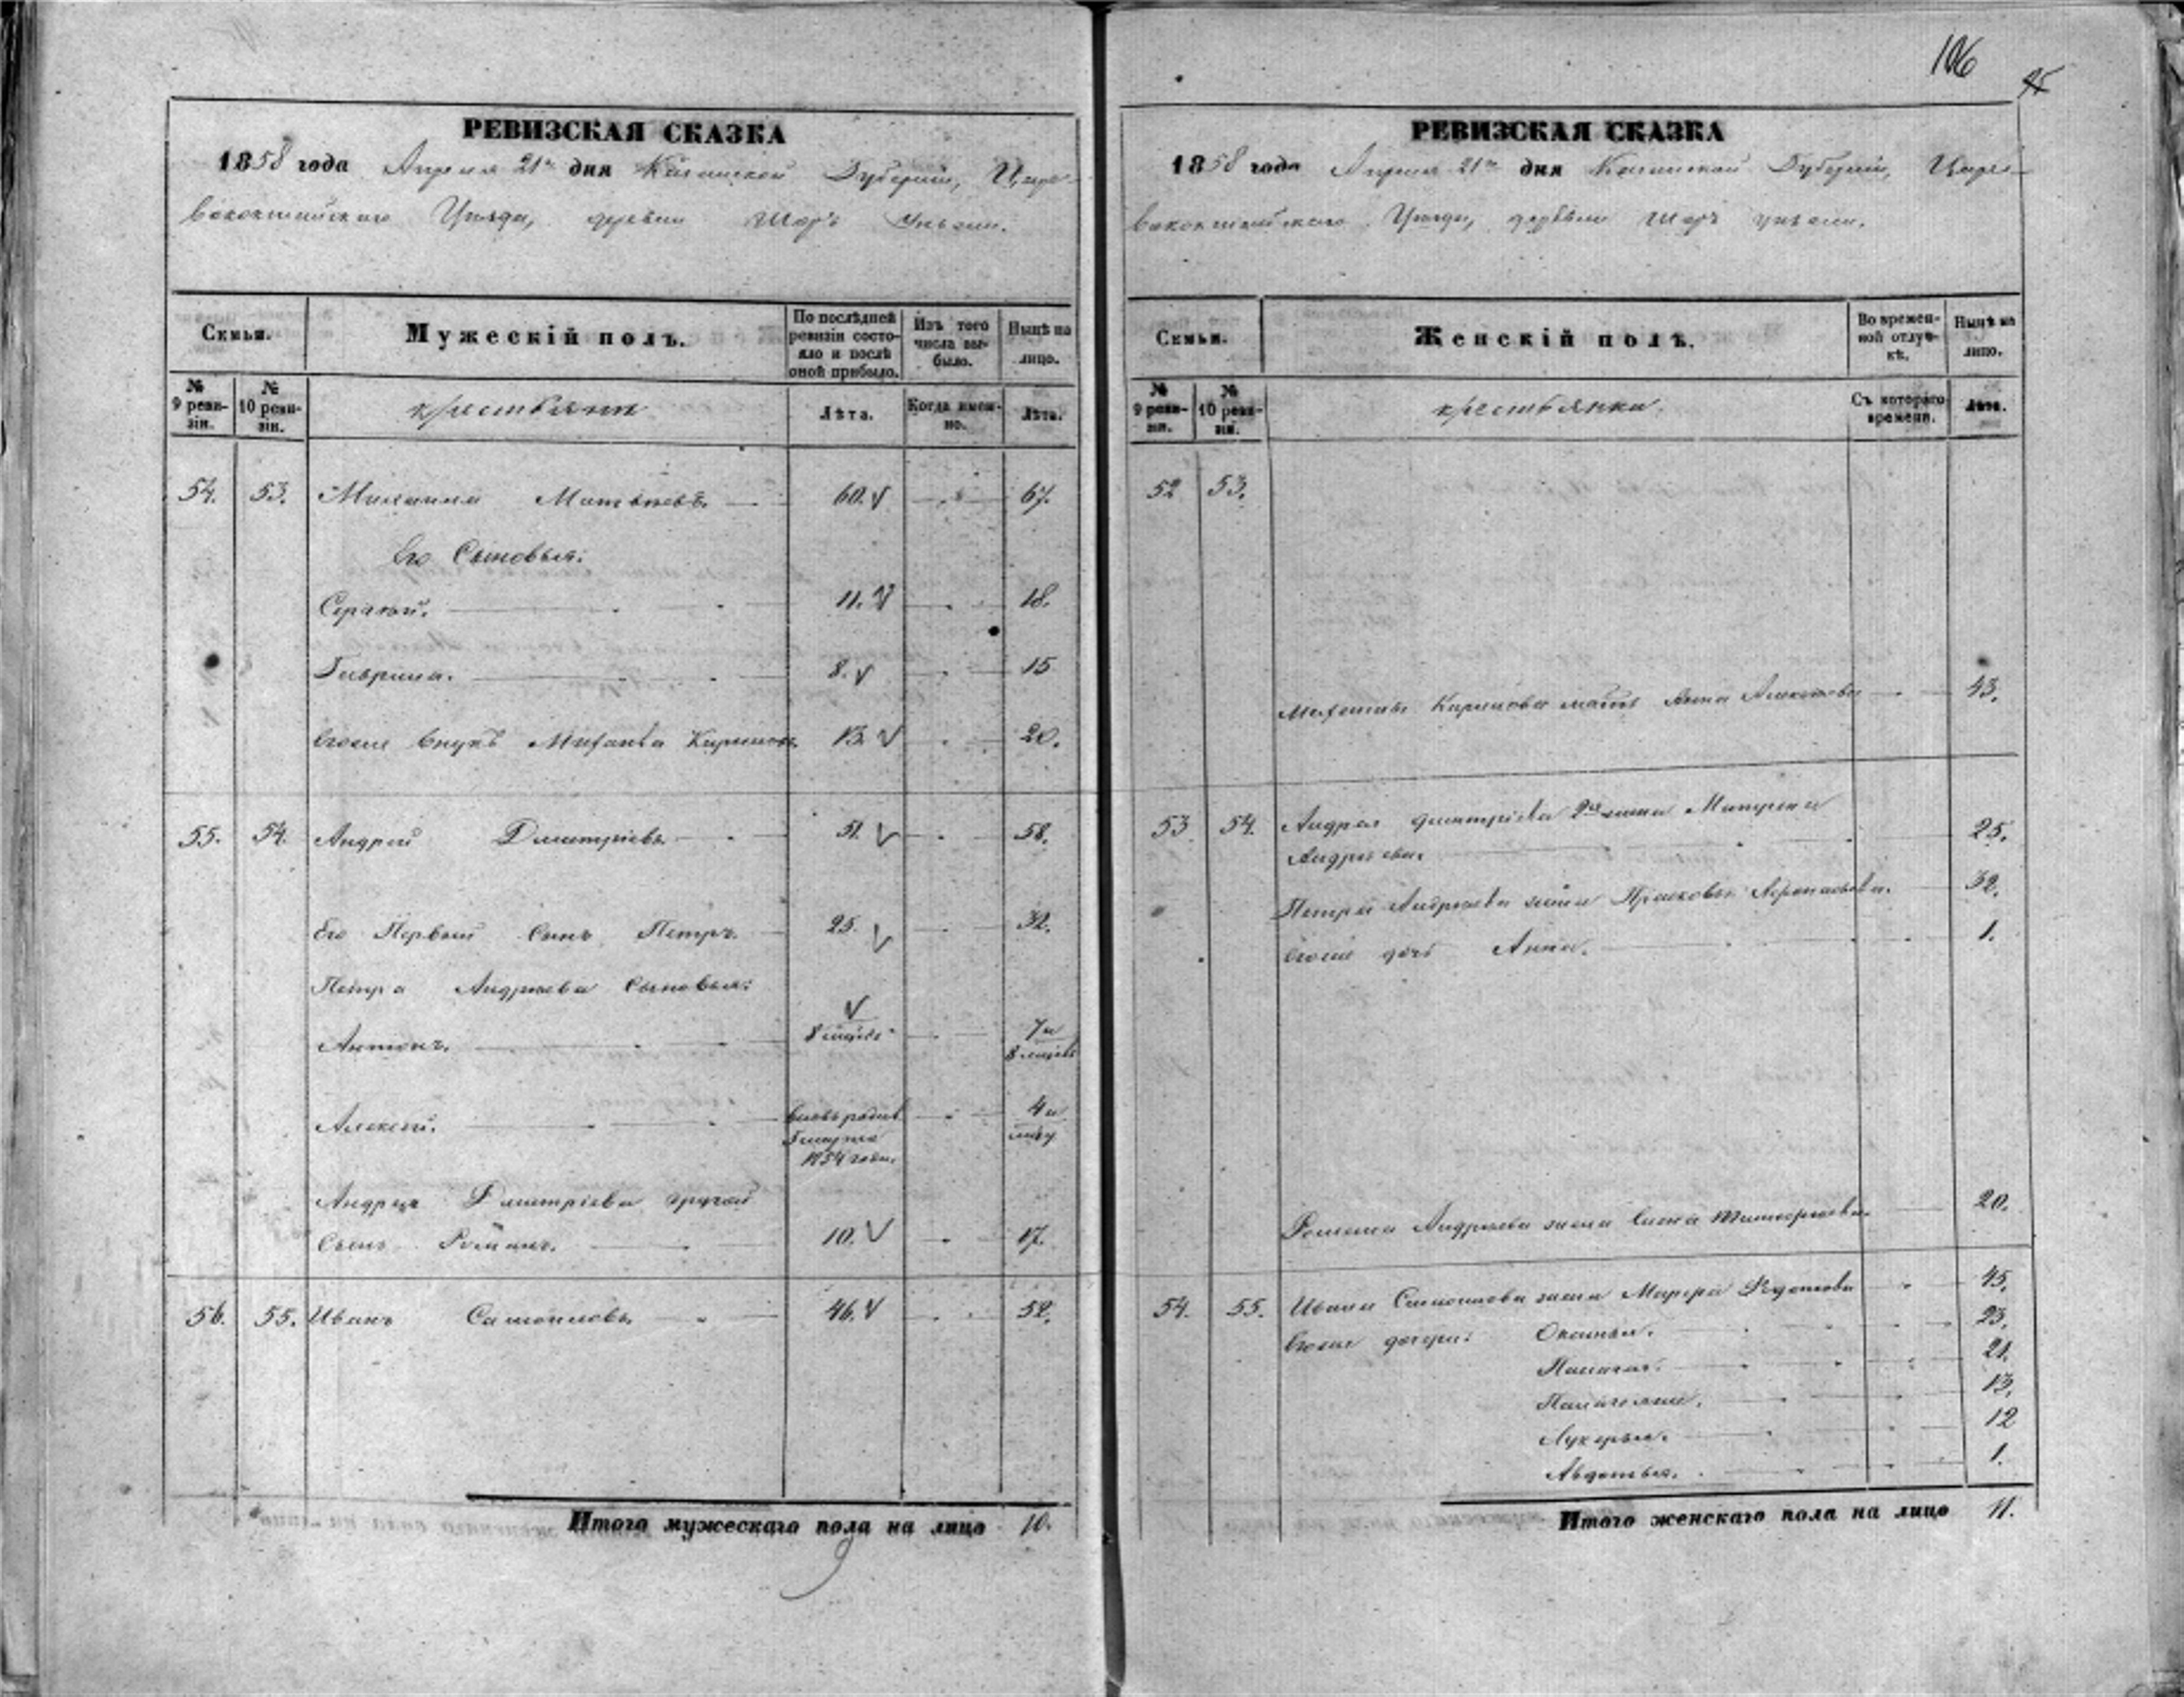 РЕВИЗСКАЯ СКАЗКА
1858 года Апреля 21го дня Казанской Губерніи, Царе-
вококшайскаго Уѣзда, деревни Шоръ
Семьи.
Мужескій полъ.
По послѣдней ревизіи состо-яло и послѣ оной прибыло.
Изъ того числа вы-было.
Нынѣ на лицо.
№ 9 реви-зіи.
№ 10 реви-зіи.
крестьяне
Лѣта.
Когда имен-но.
Лѣта.
54. 53. Михаила Матвѣевъ 60. 67.
Его Сыновья:
Сергѣй. 11. 18.
Гаврила. 8. 15
Его же внукъ 13. 20.
55. 54. Андрей Дмитріевъ 51. 58.
Его Первый Сынъ Петръ. 25. 32.
Петра Андреева Сыновья:
Антонъ. 8 7 и
8
Алексей. вновь 4 и
1854 года.
Андрея Дмитріева другой
Сынъ Романъ. 10. 17.
56. 55. Иванъ Самойловъ 46. 52.
Итого мужескаго пола на лицо 10.
106
РЕВИЗСКАЯ СКАЗКА
1858 года Апреля 21го дня Казанской Губерніи, Царе-
вококшайскаго Уѣзда, деревни Шоръ
Семьи.
Женскій полъ.
Во времен-ной отлуч-кѣ.
Нынѣ на лицо.
№ 9 реви-зіи.
№ 10 реви-зіи.
крестьянки.
Съ котораго времени.
Лѣта.
52 53.
мать Анна 43.
53 54. Андрея Дмитріева 2ая жена Матрена
Андреева. 25.
Петра Андреева жена Прасковья 32.
Его же дочь Анна. 1.
Романа Андреева жена 20.
54. 55. Ивана Самойлова жена Марфа Федотова 45.
Его же дочери: 23.
21.
13.
Лукерья. 12
Авдотья. 1.
Итого женскаго пола на лицо 11.